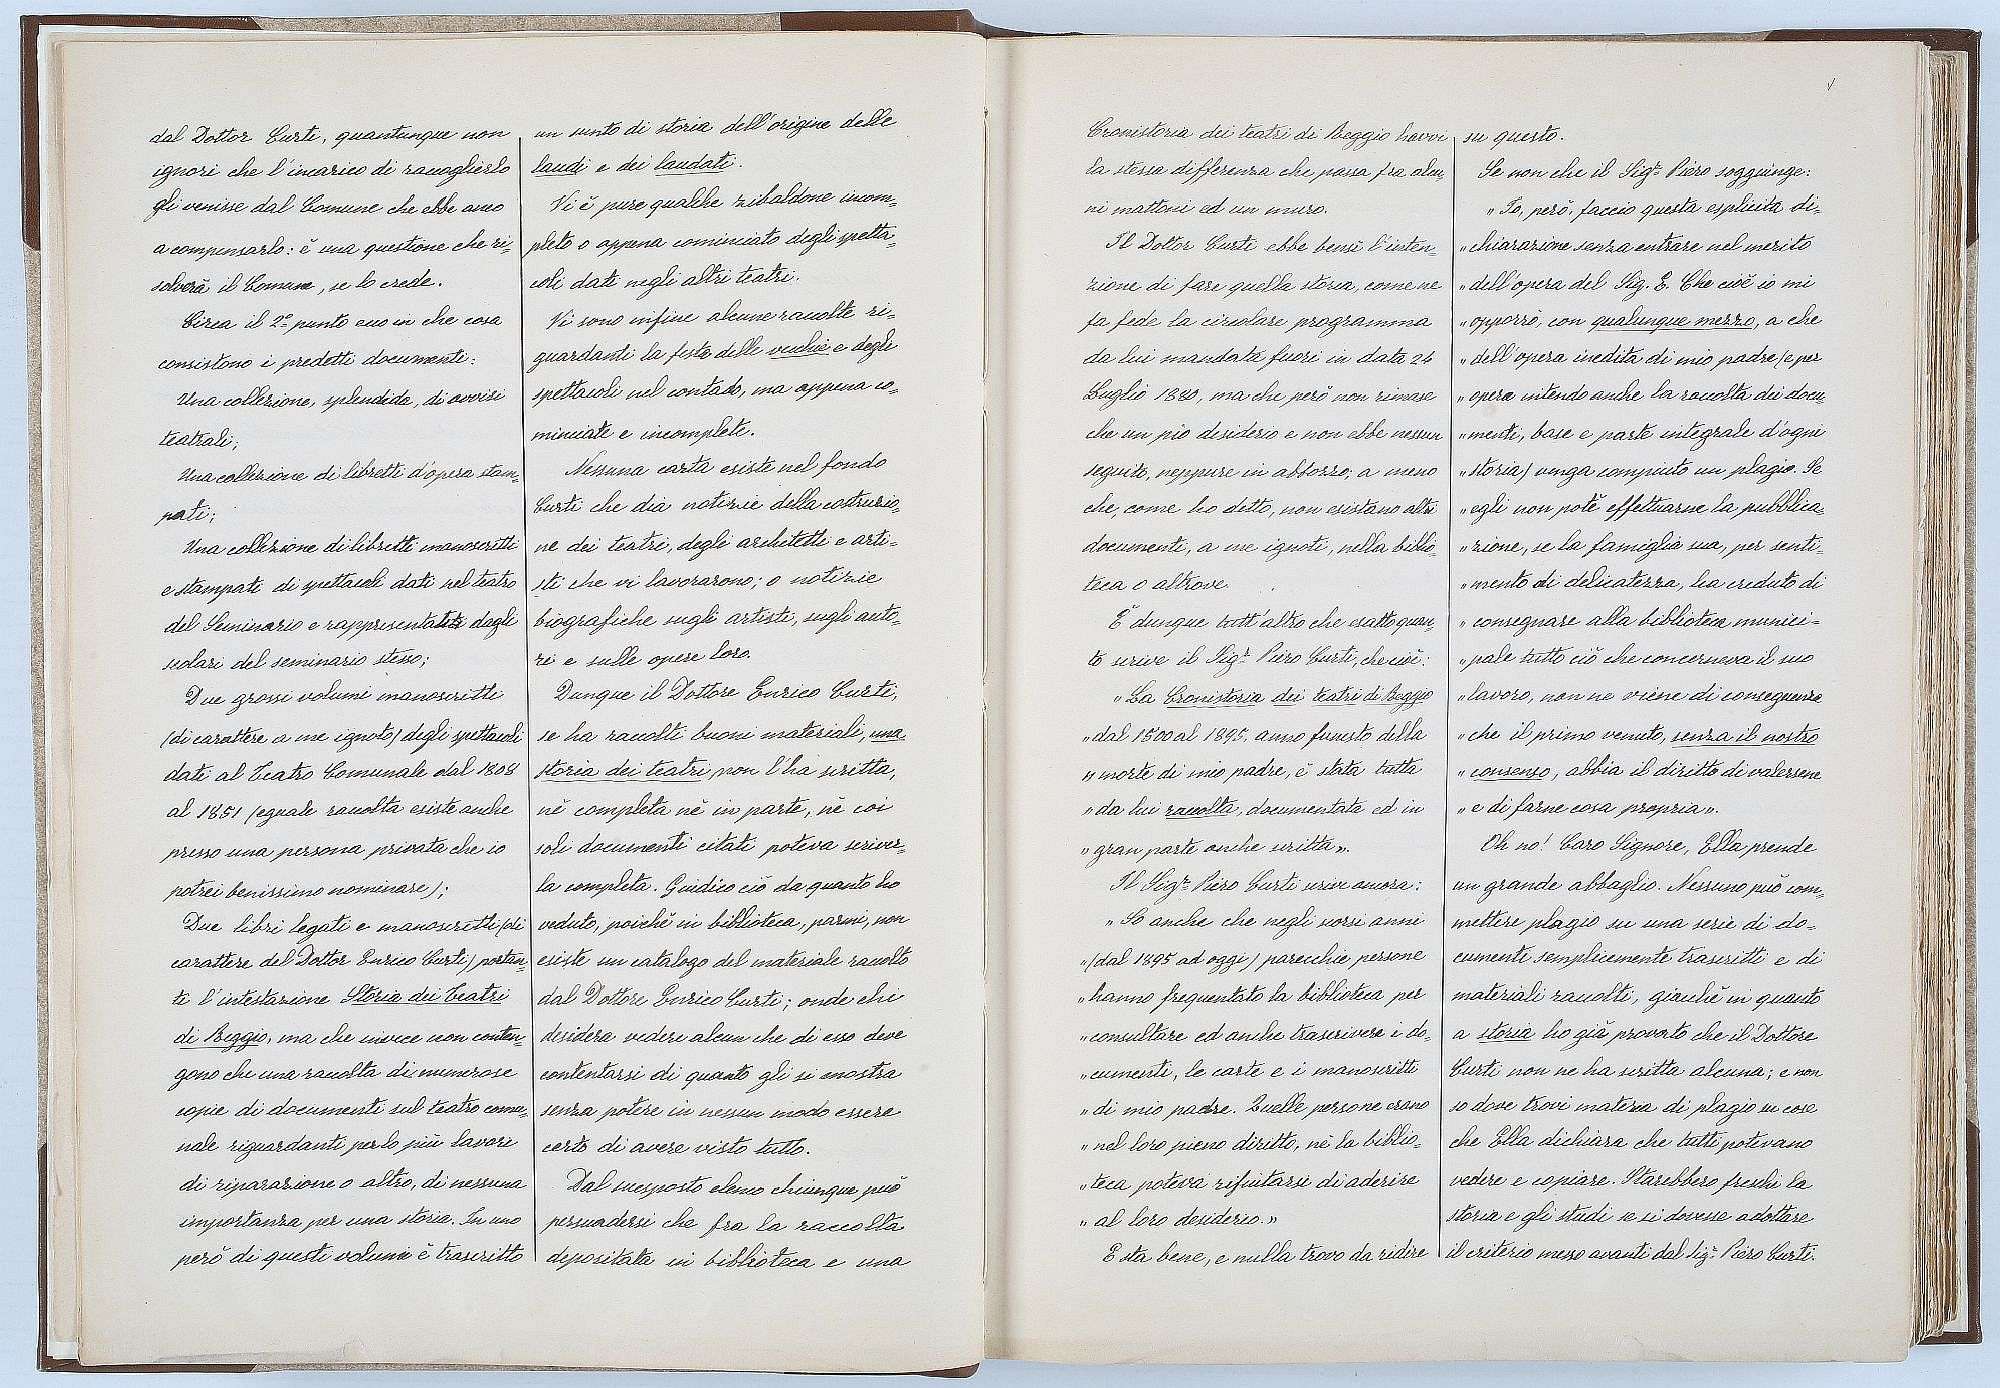 dal Dottor Curti, quantunque non
ignori che l'incarico di raccoglierlo
gli venisse dal Comune che ebbe anco
a compensarlo: è una questione che ri-
solverà il Comune, se lo crede.
Circa il 2º punto ecco in che cosa
consistono i predetti documenti:
Una collezione, splendida, di avvisi
teatrali;
Una collezione di libretti d'opera stam-
pati;
Una collezione di libretti manoscritti
e stampati di spettacoli dati nel teatro
del Seminario e rappresentati dagli
scolari del seminario stesso;
Due grossi volumi manoscritti
(di carattere a me ignoto) degli spettacoli
dati al Teatro Comunale dal 1808
al 1851 (eguale raccolta esiste anche
presso una persona privata che io
potrei benissimo nominare);
Due libri legati e manoscritti (di
carattere del Dottor Enrico Curti) portan-
ti l'intestazione Storia dei Teatri
di Reggio, ma che invece non conten-
gono che una raccolta di numerose
copie di documenti sul teatro comu-
nale riguardanti per lo più lavori
di riparazione o altro, di nessuna
importanza per una storia. In uno
però di questi volumi è trascritto
un sunto di storia dell'origine delle
laudi e dei laudati.
Vi è pure qualche zibaldone incom-
pleto o appena cominciato degli spetta-
coli dati negli altri teatri.
Vi sono infine alcune raccolte ri-
guardanti la festa delle vecchie e degli
spettacoli nel contado, ma appena co-
minciate e incomplete.
Nessuna carta esiste nel fondo
Curti che dia notizie della costruzio-
ne dei teatri, degli architetti e arti-
sti che vi lavorarono; o notizie
biografiche sugli artisti, sugli auto-
ri e sulle opere loro.
Dunque il Dottore Enrico Curti,
se ha raccolti buoni materiali, una
storia dei teatri, non l'ha scritta,
nè completa nè in parte, nè coi
soli documenti citati poteva scriver-
la completa. Giudico ciò da quanto ho
veduto, poichè in biblioteca, parmi, non
esiste un catalogo del materiale raccolto
dal Dottore Enrico Curti; onde chi
desidera vedere alcun che di esso deve
contentarsi di quanto gli si mostra
senza potere in nessun modo essere
certo di avere visto tutto.
Dal suesposto elenco chiunque può
persuadersi che fra la raccolta
depositata in biblioteca e una
Cronistoria dei teatri di Reggio havvi
la stessa differenza che passa fra alcu-
ni mattoni ed un muro.
Il Dottor Curti ebbe bensì l'inten-
zione di fare quella storia, come ne
fa fede la circolare programma
da lui mandata fuori in data 24
Luglio 1880, ma che però non rimase
che un pio desiderio e non ebbe nessun
seguito, neppure in abbozzo; a meno
che, come ho detto, non esistano altri
documenti, a me ignoti, nella biblio-
teca o altrove.
È dunque tutt'altro che esatto quan-
to scrive il Sigr. Piero Curti, che cioè:
"La Cronistoria dei teatri di Reggio
"dal 1500 al 1895, anno funesto della
"morte di mio padre, è stata tutta
"da lui raccolta, documentata ed in
"gran parte anche scritta".
Il Sigr. Piero Curti scrive ancora:
"So anche che negli scorsi anni
"(dal 1895 ad oggi) parecchie persone
"hanno frequentato la biblioteca per
"consultare ed anche trascrivere i do-
"cumenti, le carte e i manoscritti
"di mio padre. Quelle persone erano
"nel loro pieno diritto, nè la biblio-
"teca poteva rifiutarsi di aderire
"al loro desiderio."
E sta bene, e nulla trovo da ridire
su questo.
Se non che il Sigr. Piero soggiunge:
"Io, però, faccio questa esplicita di-
"chiarazione senza entrare nel merito
"dell'opera del Sig. E. Che cioè io mi
"opporrò, con qualunque mezzo, a che
"dell'opera inedita di mio padre (e per
"opera intendo anche la raccolta dei docu-
"menti, base e parte integrale d'ogni
"storia) venga compiuto un plagio. Se
"egli non potè effettuarne la pubblica-
"zione, se la famiglia sua, per senti-
"mento di delicatezza, ha creduto di
"consegnare alla biblioteca munici-
"pale tutto ciò che concerneva il suo
"lavoro, non ne viene di conseguenza
"che il primo venuto, senza il nostro
"consenso, abbia il diritto di valersene
"e di farne cosa propria".
Oh no! Caro Signore, Ella prende
un grande abbaglio. Nessuno può com-
mettere plagio su una serie di do-
cumenti semplicemente trascritti e di
materiali raccolti, giacchè in quanto
a storia ho già provato che il Dottore
Curti non ne ha scritta alcuna; e non
so dove trovi materia di plagio su cose
che Ella dichiara che tutti potevano
vedere e copiare. Starebbero freschi la
storia e gli studi se si dovesse adottare
il criterio messo avanti dal Sigr. Piero Curti.